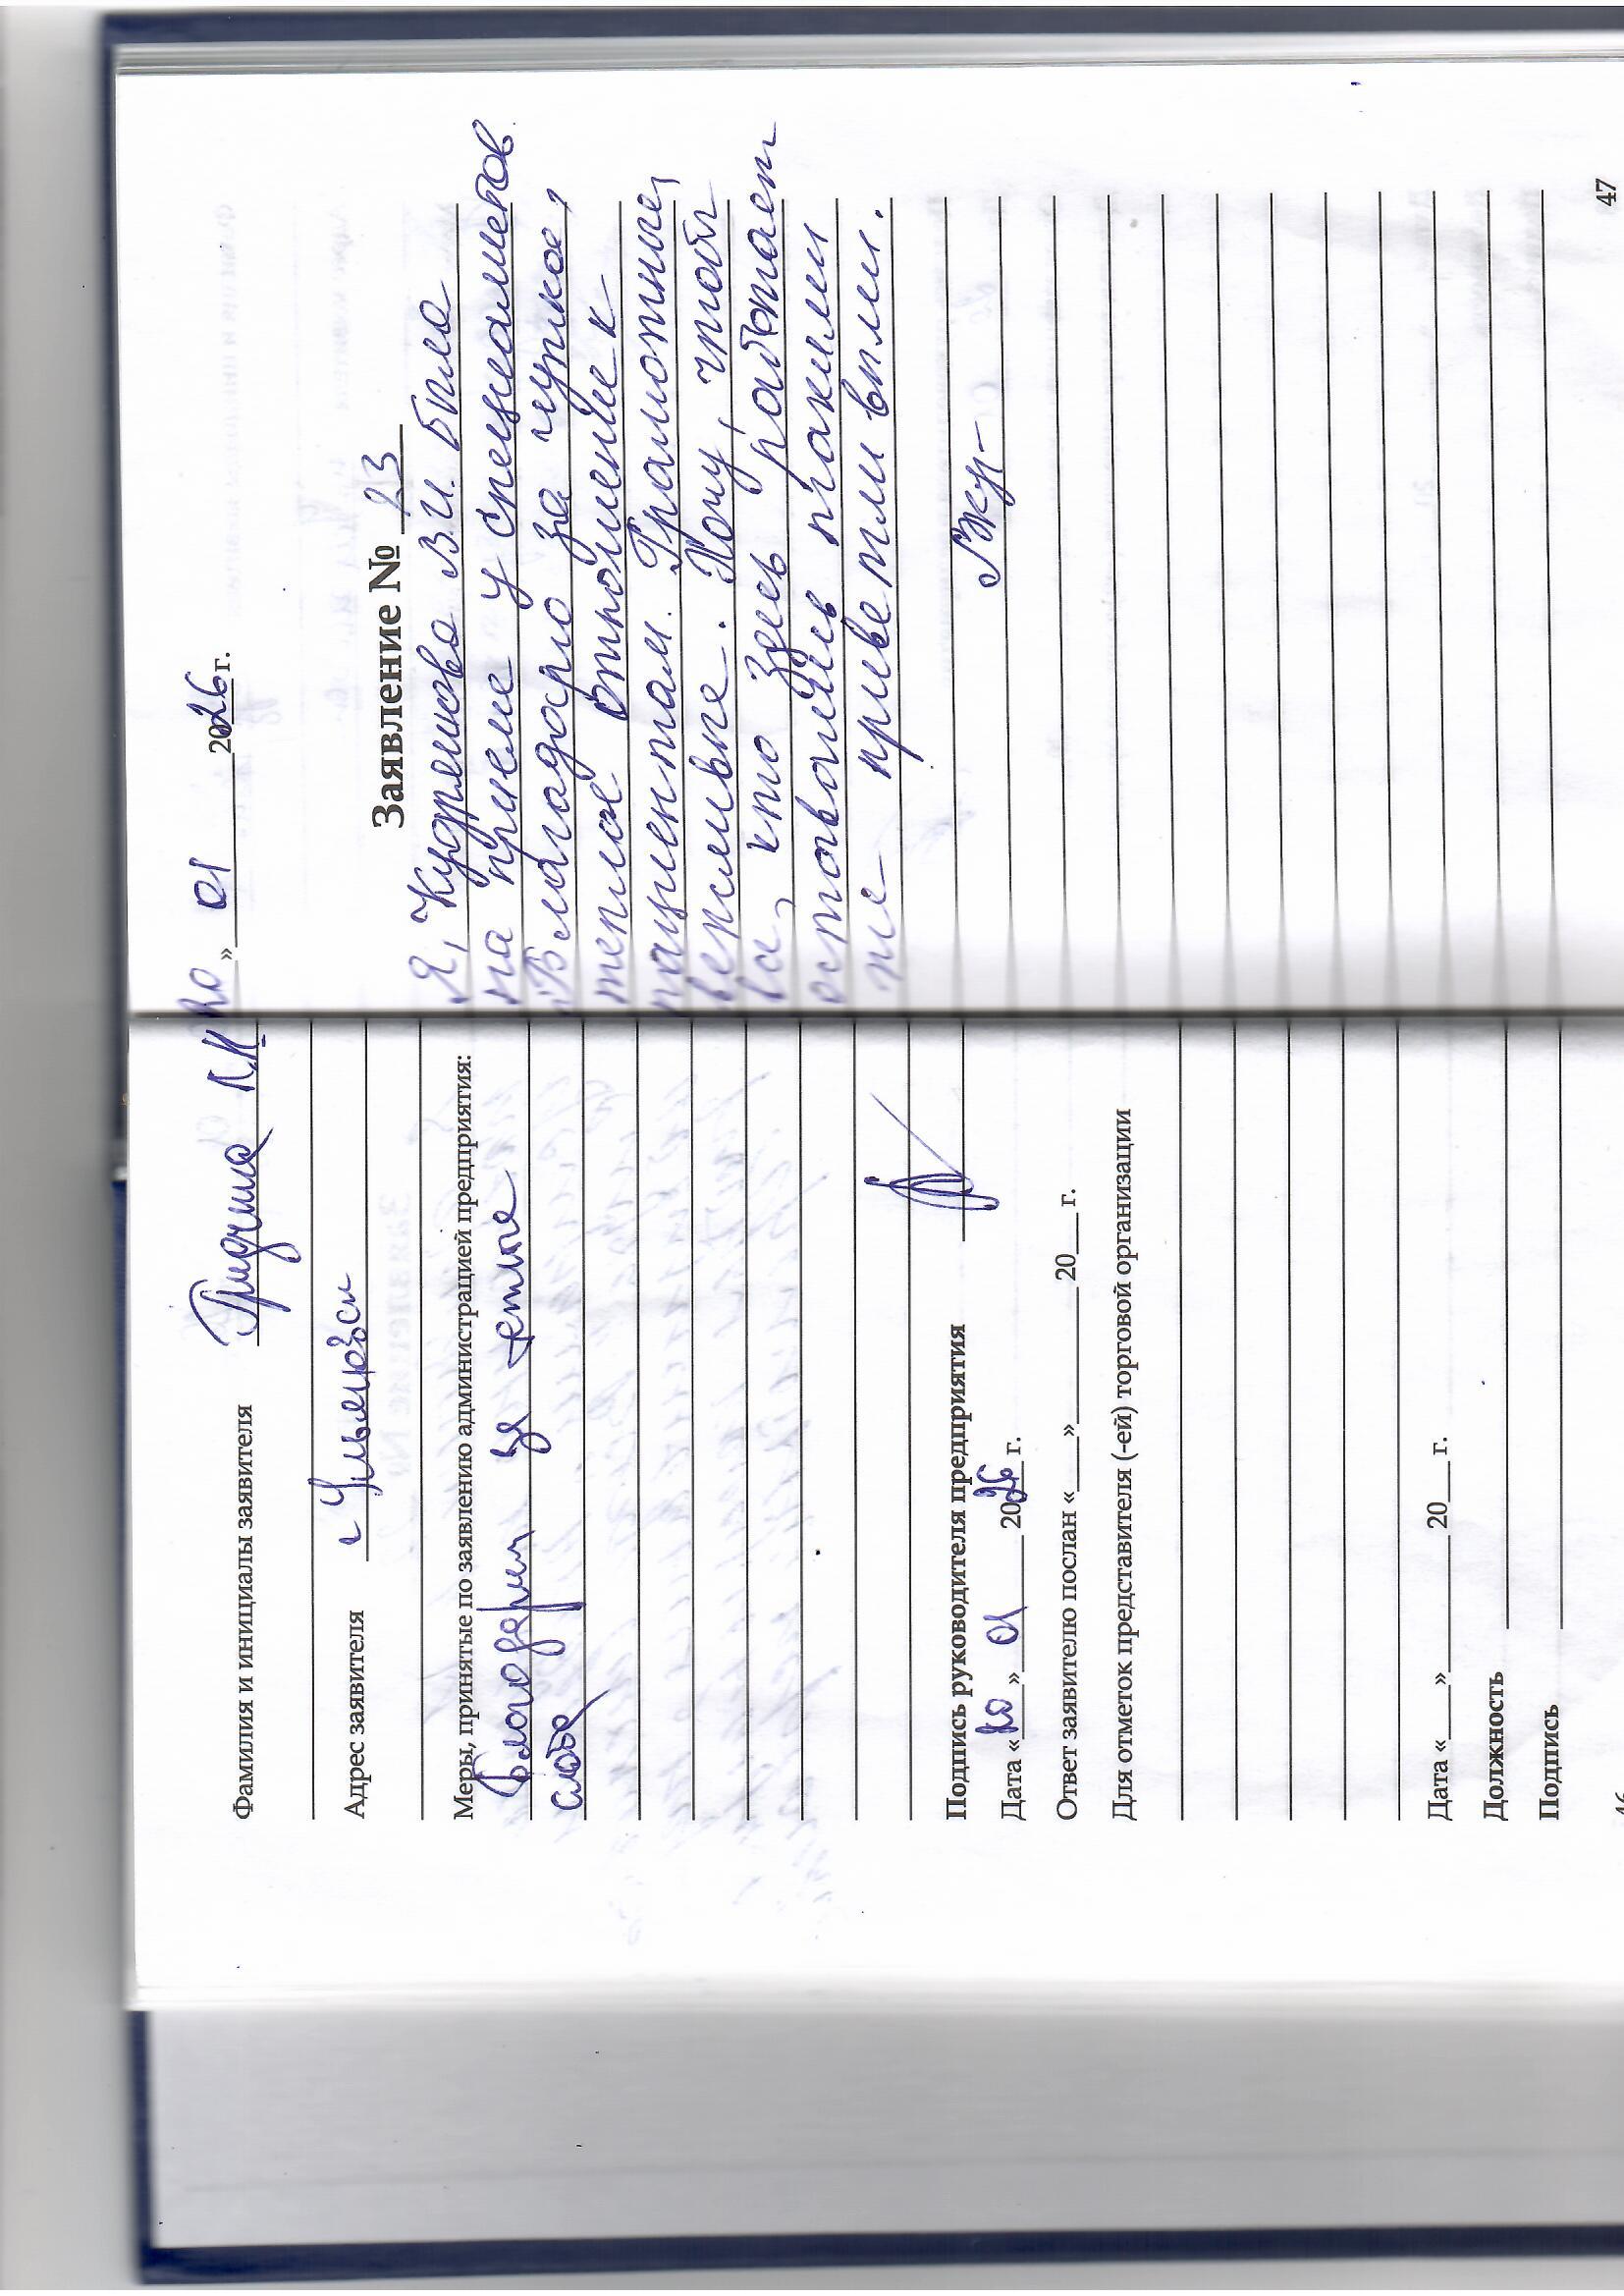 Фамилия и инициалы заявителя Гридчина Л.И
Адрес заявителя г Ульяновск
Меры, принятые по заявлению администрацией предприятия:
Благодарим за теплые
слова
Подпись руководителя предприятия
Дата «20» 01 2026 г.
Ответ заявителю послан «___»________20__ г.
Для отметок представителя (-ей) торговой организации
Дата «___»________ 20__ г.
Должность
Подпись
46
20 » 01 2026 г.
Заявление № 23
Я, Кудряшова В.И. была
на приеме у специалистов.
Благодарю за чуткое,
теплое отношение к
пациентам. Грамотные,
вежливые. Хочу, чтобы
все, кто здесь работает
оставались такими
же приветливыми.
47